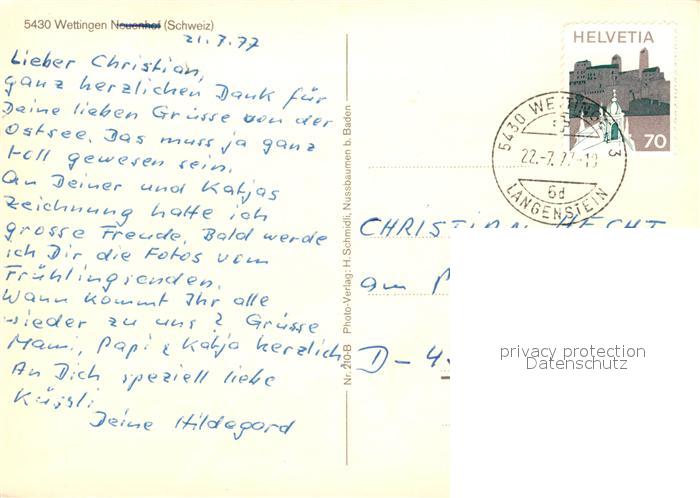 5430 Wettingen Neuenhof (Schweiz)
21.7.77
Lieber Christian,
ganz herzlichen Dank für
Deine lieben Grüsse von der
Ostsee. Das muss ja ganz
toll gewesen sein.
An Deiner und Katjas
Zeichnung hatte ich
grosse Freude. Bald werde
ich Dir die Fotos vom
Frühling senden.
Wann kommt Ihr alle
wieder zu uns? Grüsse
Mami, Papi & Katja herzlich
An Dich speziell liebe
Küssli
Deine Hildegard
Nr. 210-B Photo-Verlag: H. Schmidli, Nussbaumen b. Baden
HELVETIA
70
5430 WETTINGEN 3
22.-7.77-19
6d
LANGENSTEIN
CHRISTIAN HECHT
am
D-4
privacy protection
Datenschutz